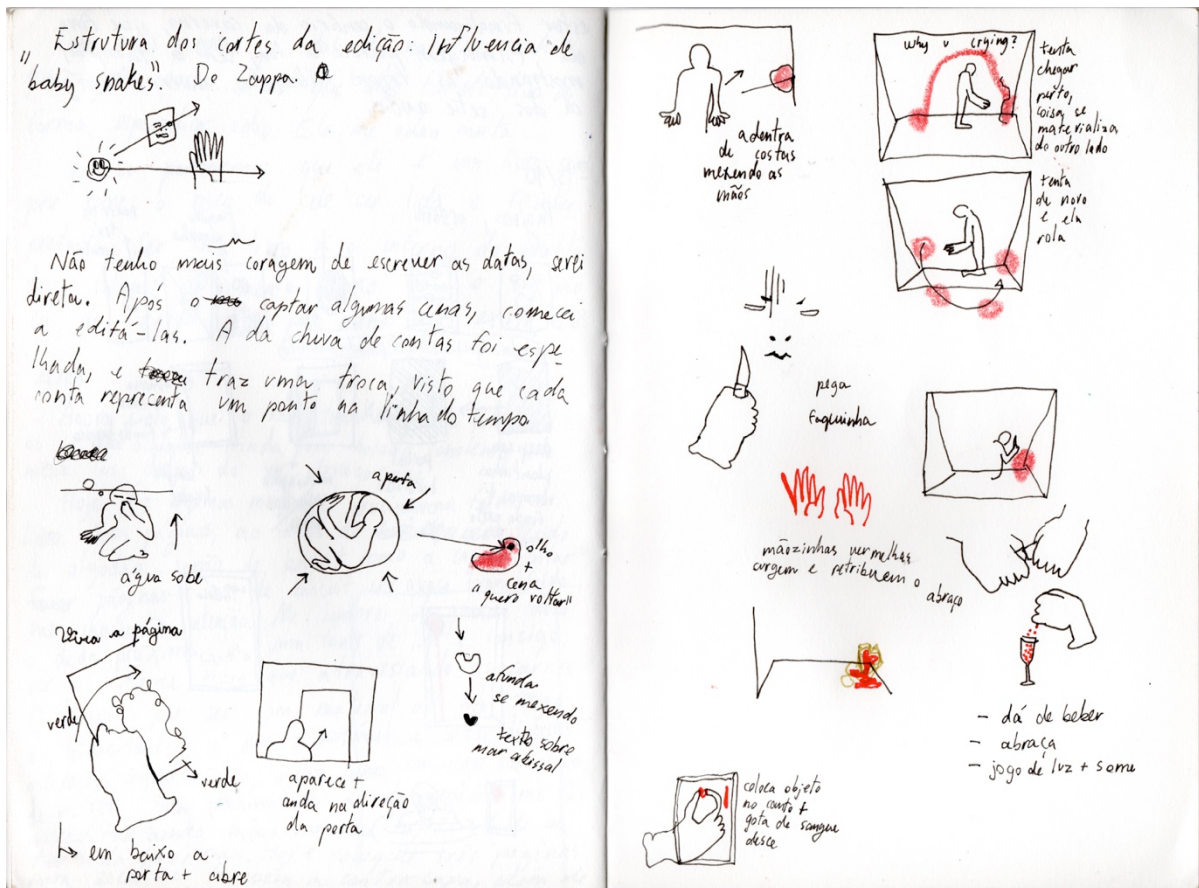 Estrutura dos cortes da edição: Influencia de
"baby snakes". Do Zappa.
Não tenho mais coragem de escrever as datas, serei
direta. Após o captar algumas cenas, comecei
a editá-las. A da chuva de contas foi espe-
lhada, e traz uma troca, visto que cada
conta representa um ponto na linha do tempo.
água sobe
aperta
olho
+
cena
"quero voltar"
Vira a página
verde
verde
↳ em baixo a
porta + abre
aparece +
anda na direção
da porta
afunda
se mexendo
texto sobre
mar abissal
adentra
de costas
mexendo as
mãos
Why u crying?
tenta
chegar
perto,
coisa se
materializa
do outro lado
tenta
de novo
e ela
rola
pega
faquinha
mãozinhas vermelhas
surgem e retribuem o
abraço
- dá de beber
- abraça
- jogo de luz + some
coloca objeto
no canto +
gota de sangue
desce